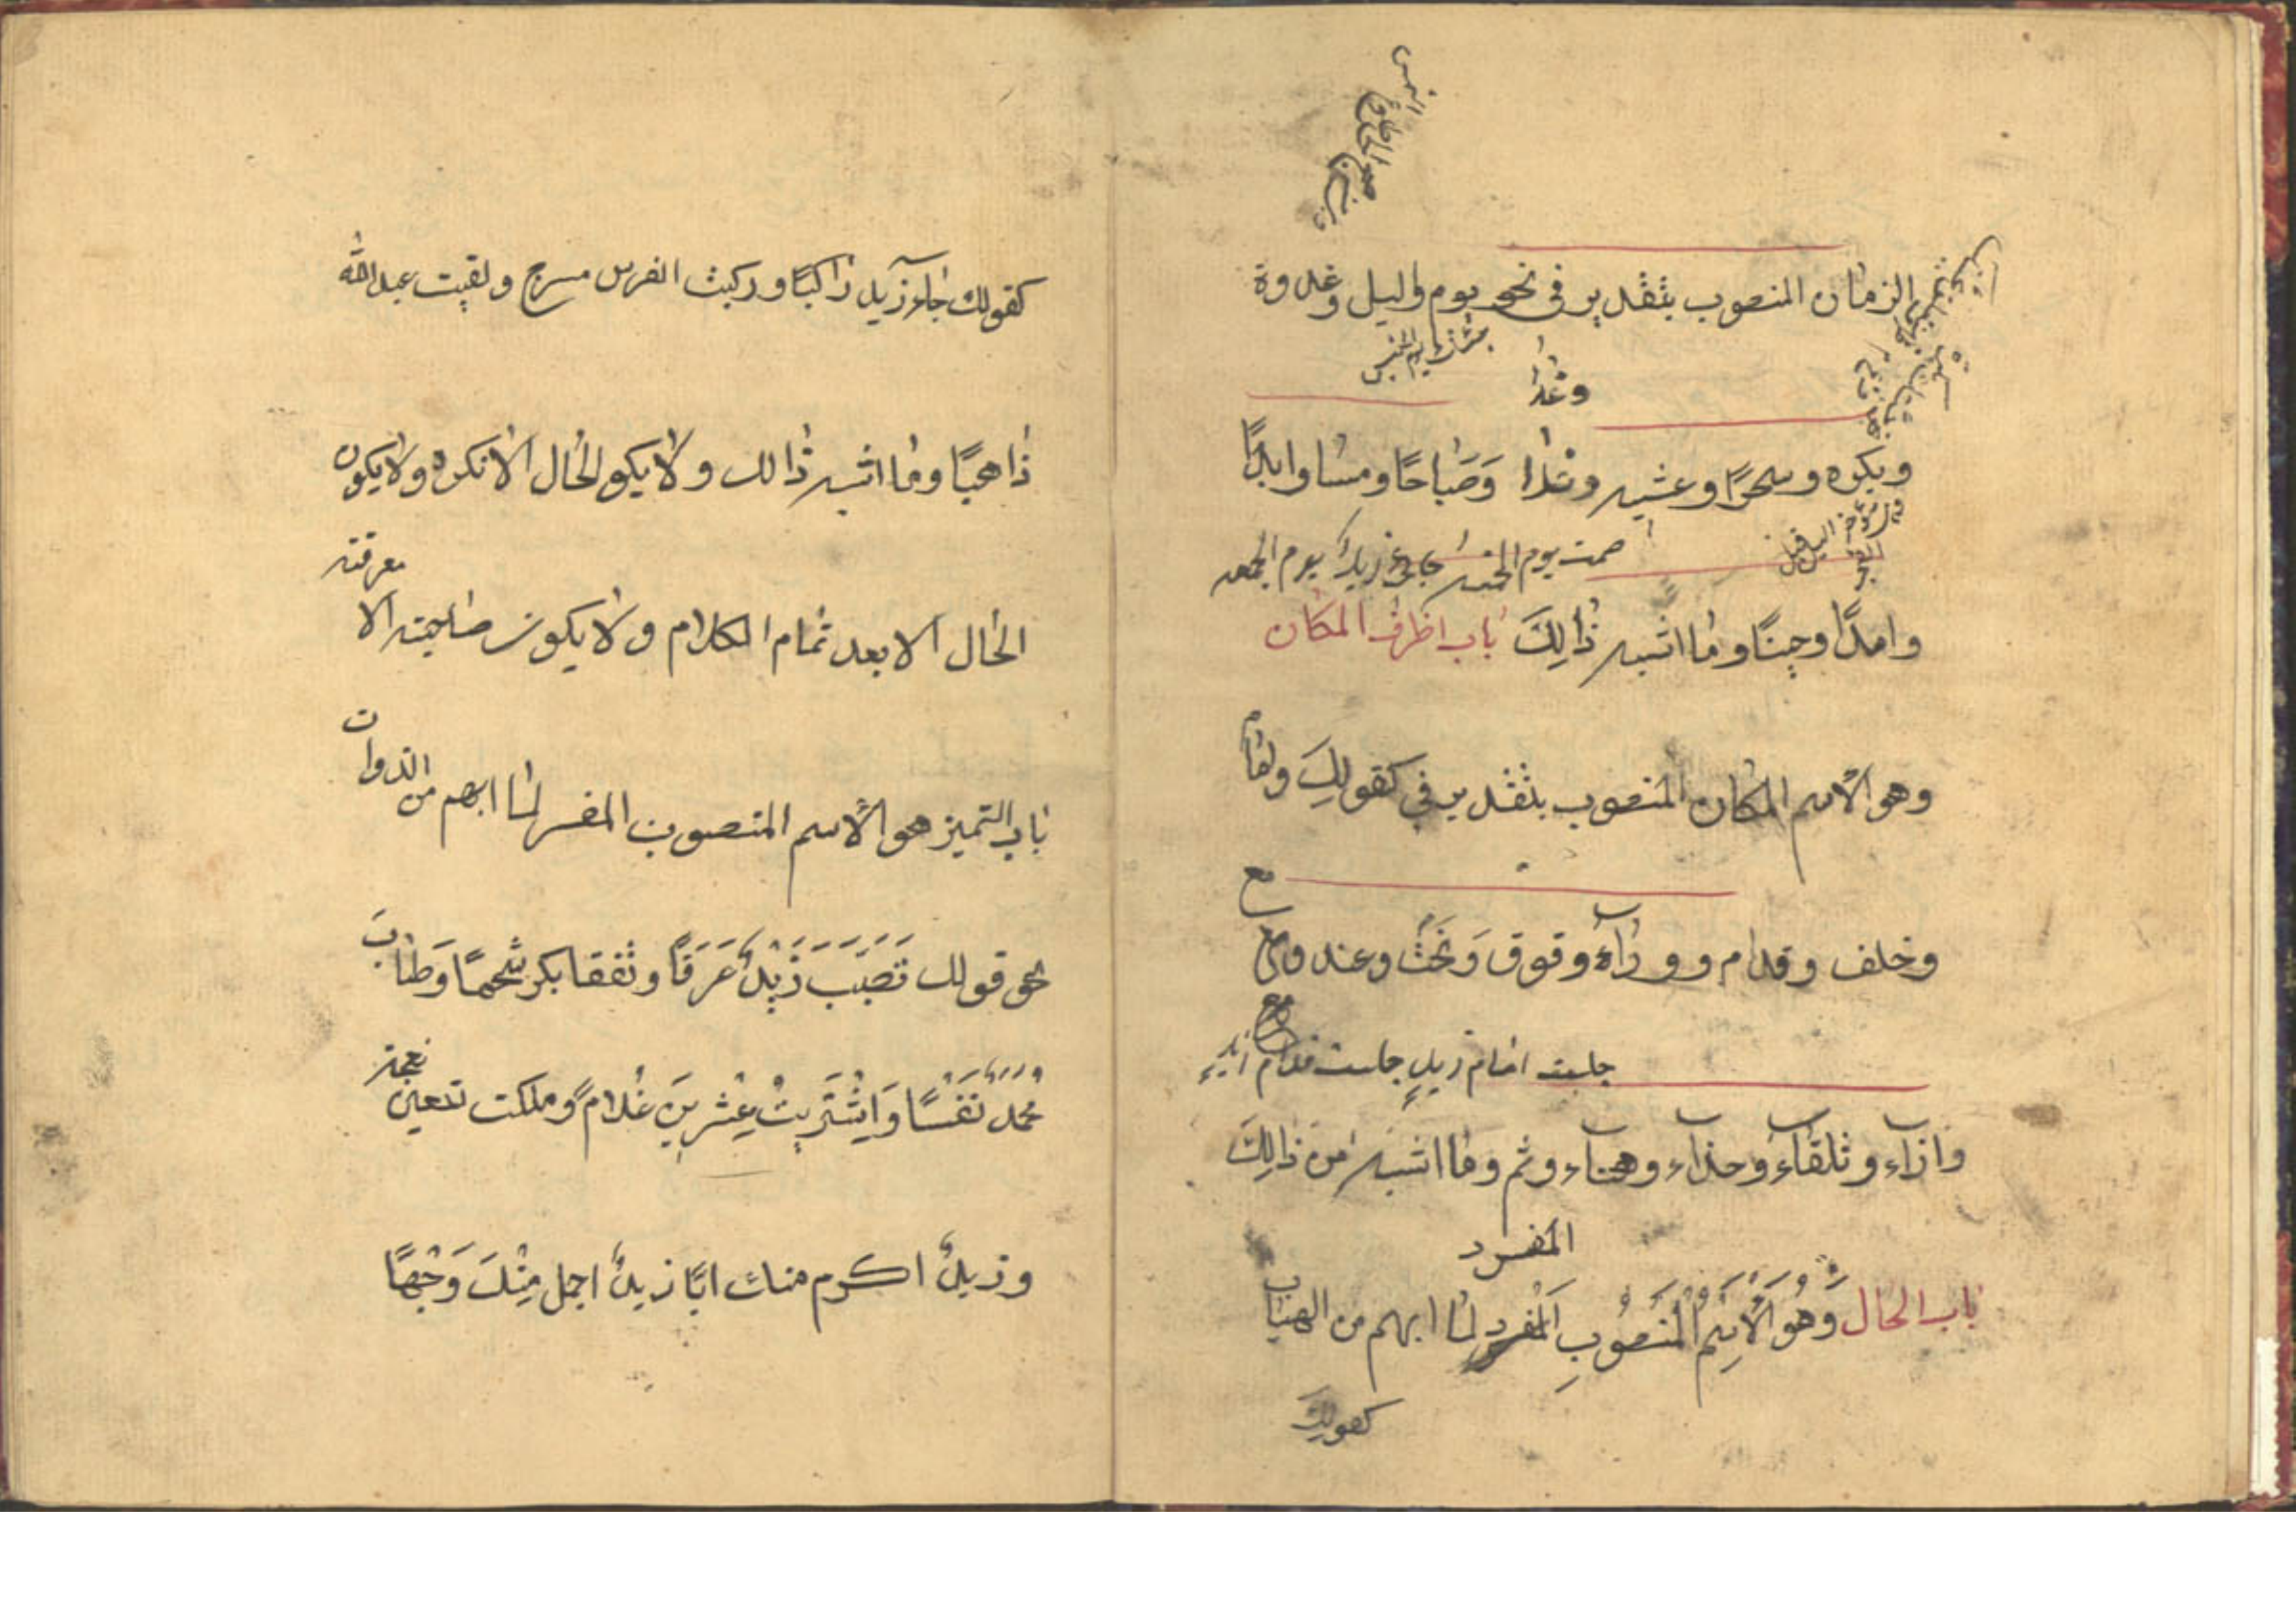 الزمان المنصوب بتقدير في نحو يوم واليل وغدوة
وغدا
وبكره وسحرًا وعشيه وغدا وَصَباحًا ومساوابدًا
صمت يوم الخميس زيدا يوم الجمعه
وامدًا وحينًا وما اشبه ذالِكَ باب اظرف المكان
وهو الاسم المكان المنصوب بتقدير في كقولكَ وامام
مع
وخلف وقدام ووراء وقوق وَتَحْتَ وعند
جلست امام زيدٍ جلست قدام
وازاء وتلقاء وحذاء وهناء وثم وما اشبه من ذالِكَ
المفسر
باب الحال وَهُوَ الْاِسْمُ الْمَنْصُوبِ لما ابهم من الهيات
كقولك
كقولك جاء زيد راكبًا وركبت الفرس مسرج ولقيت عبدالله
ذاهبًا وما اشبه ذالك ولا يكو الحال الا نكره ولا يكون
الحال الا بعد تمام الكلام ولا يكون صاحبته الا معرفته
باب التميز هو الاسم المنصوب المفسر لما ابهم من الذوات
نحو قولك تَصَبَّبَ زَيْدٌ عَرَقًا وتفقا بكر شحمًا وَطابَ
محمد نَفْسًا وَاِشْتَرَيتُ عِشْرينَ غُلامً وملكت تسعين نعجته
وزيدٌ اكرم منك ابًا زيدٌ اجمل مِنْكَ وَجْهًا